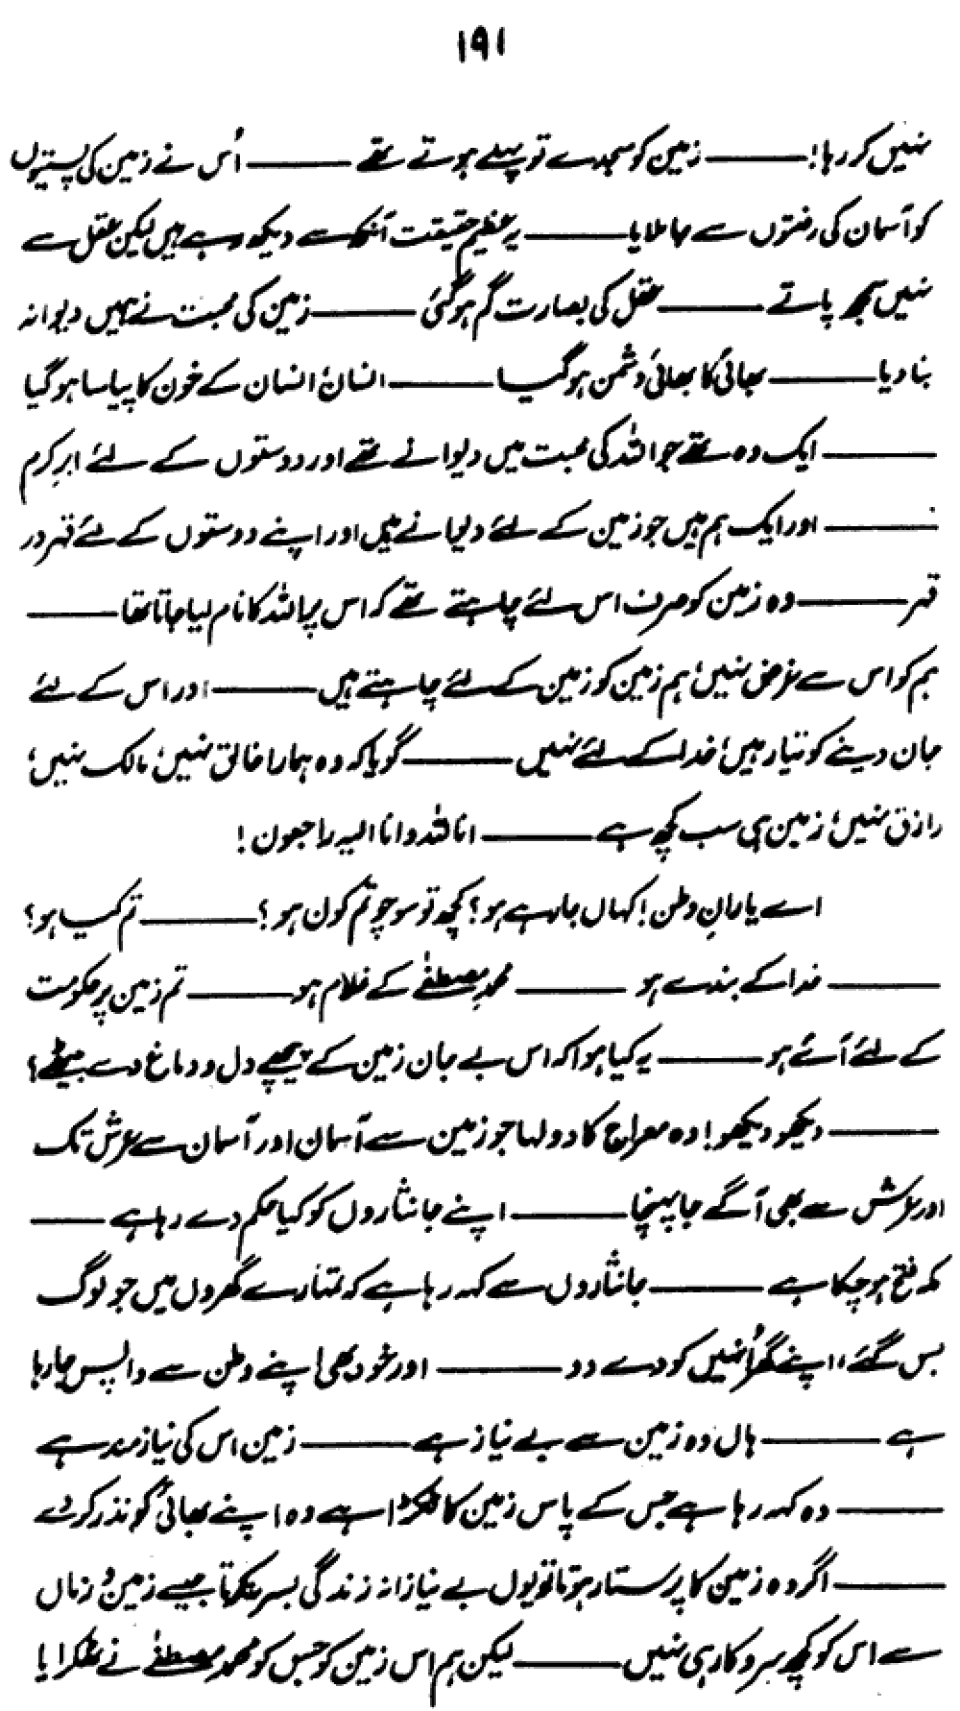 ۱۹۱
نہیں کر رہا! ——— زمین کو سجدے تو پہلے ہوتے تھے ——— اُس نے زمین کی پستیوں
کو آسمان کی رفعتوں سے جا ملایا ——— یہ عظیم حقیقت آنکھ سے دیکھ رہے ہیں لیکن عقل سے
نہیں سمجھ پاتے ——— عقل کی بصارت گم ہو گئی ——— زمین کی محبت نے ہمیں دیوانہ
بنا دیا ——— بھائی کا بھائی دشمن ہو گیا ——— انسان، انسان کے خون کا پیاسا ہو گیا
——— ایک وہ تھے جو اللہ کی محبت میں دیوانے تھے اور دوستوں کے لئے ابرِ کرم
——— اور ایک ہم ہیں جو زمین کے لئے دیوانے ہیں اور اپنے دوستوں کے لئے قہر در
قہر ——— وہ زمین کو صرف اس لئے چاہتے تھے کہ اس پر اللہ کا نام لیا جاتا تھا ———
ہم کو اس سے غرض نہیں؛ ہم زمین کو زمین کے لئے چاہتے ہیں ——— اور اس کے لئے
جان دینے کو تیار ہیں؛ خدا کے لئے نہیں ——— گویا کہ وہ ہمارا خالق نہیں؛ مالک نہیں؛
رازق نہیں؛ زمین ہی سب کچھ ہے ——— انا للہ وانا الیہ راجعون!
اے یارانِ وطن! کہاں جا رہے ہو؟ کچھ تو سوچو تم کون ہو؟ ——— تم کیا ہو؟
——— خدا کے بندے ہو ——— محمد مصطفیٰ کے غلام ہو ——— تم زمین پر حکومت
کے لئے آئے ہو ——— یہ کیا ہوا کہ اس بے جان زمین کے پیچھے دل و دماغ دے بیٹھے؟
——— دیکھو دیکھو! وہ معراج کا دولہا جو زمین سے آسمان اور آسمان سے عرش تک
اور عرش سے بھی آگے جا پہنچا ——— اپنے جانثاروں کو کیا حکم دے رہا ہے ———
مکہ فتح ہو چکا ہے ——— جانثاروں سے کہہ رہا ہے کہ تمہارے گھروں میں جو لوگ
بس گئے، اپنے گھر اُنہیں کو دے دو ——— اور خود بھی اپنے وطن سے واپس جا رہا
ہے ——— ہاں وہ زمین سے بے نیاز ہے ——— زمین اس کی نیاز مند ہے
——— وہ کہہ رہا ہے جس کے پاس زمین کا ٹکڑا ہے وہ اپنے بھائی کو نذر کر دے
——— اگر وہ زمین کا پرستار ہوتا تو یوں بے نیازانہ زندگی بسر نہ کرتا جیسے زمین و زماں
سے اس کو کچھ سروکار ہی نہیں ——— لیکن ہم اس زمین کو جس کو محمد مصطفیٰ نے ٹھکرایا